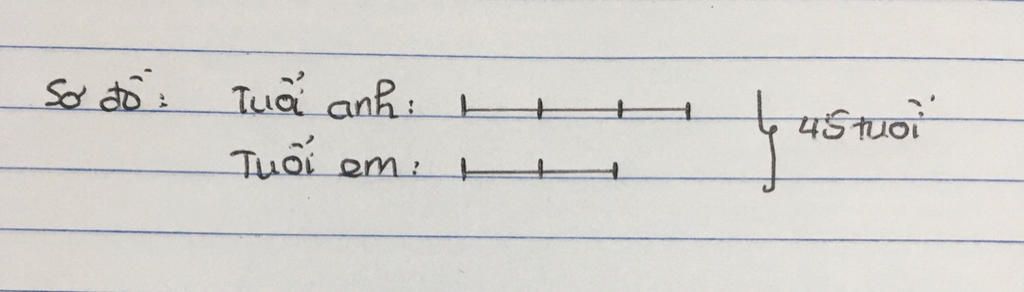 Sơ đồ: Tuổi anh:
Tuổi em:
45 tuổi